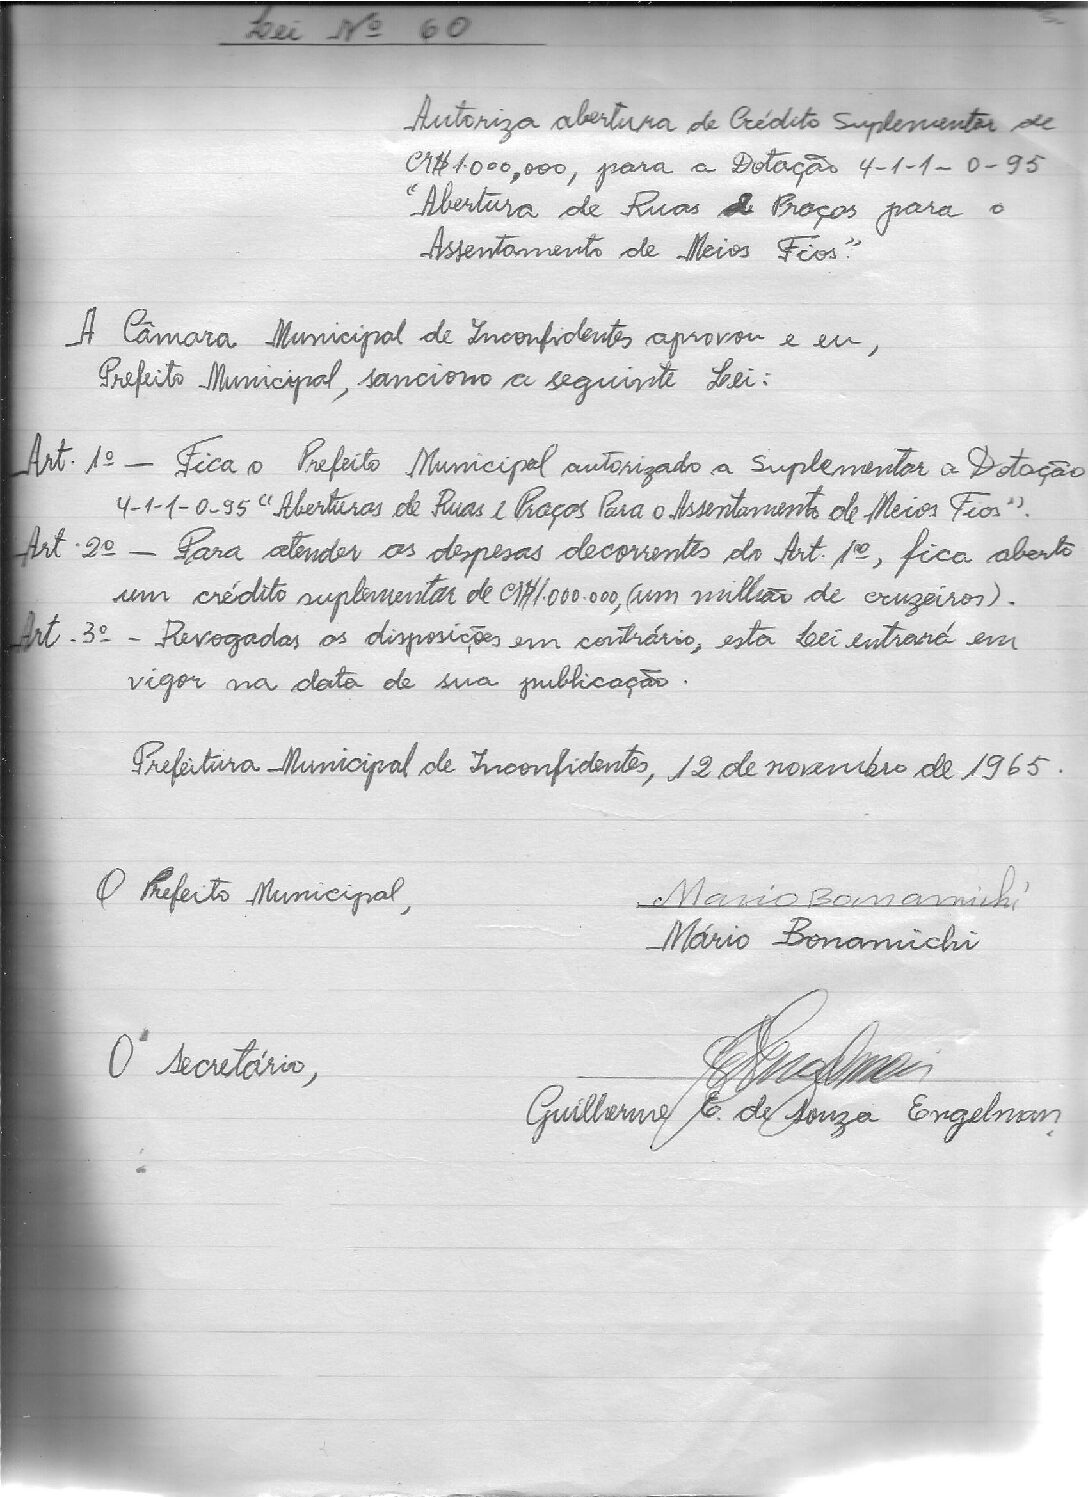 Lei Nº 60
Autoriza abertura de Crédito Suplementar de
CR$1.000,000, para a Dotação 4-1-1-0-95
"Abertura de Ruas e Praças para o
Assentamento de Meios Fios".
A Câmara Municipal de Inconfidentes aprovou e eu,
Prefeito Municipal, sanciono a seguinte Lei:
Art. 1º - Fica o Prefeito Municipal autorizado a Suplementar a Dotação
4-1-1-0-95 "Aberturas de Ruas e Praças Para o Assentamento de Meios Fios".
Art. 2º - Para atender as despesas decorrentes do Art. 1º, fica aberto
um crédito suplementar de CR$1.000.000, (um milhão de cruzeiros).
Art. 3º - Revogadas as disposições em contrário, esta Lei entrará em
vigor na data de sua publicação.
Prefeitura Municipal de Inconfidentes, 12 de novembro de 1965.
O Prefeito Municipal,
Mario Bonamichi
Mário Bonamichi
O Secretário,
Engelman
Guilherme E. de Souza Engelman